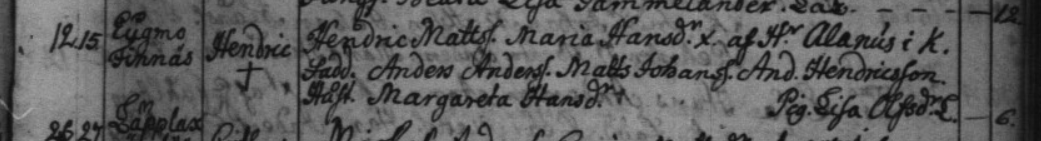 Lisa Sammelander. Lax. - - - 12.
12.15. Eugmo Hendric Hendric Mattss. Maria Hansdr. x. af Hr Alanus i K.
Finnäs † Fadd. Anders Anderss. Matts Johanss. And. Hendricsson
Hust. Margareta Hansdr. Pig. Lisa Olssdr. L. - 6.
26.27 Lapplax